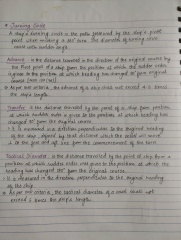 * Turning Circle
A ship's turning circle is the path followed by the ship's pivot
point when making a 360° turn. The diameter of turning circle
varies with rudder angle
Advance - is the distance travelled in the direction of the original course by
the pivot point of a ship from the position at which the rudder order
is given to the position at which heading has changed 90° from original
course
* As per imo criteria, the advance of a ship must not exceed 4.5 times
the ship's length.
Transfer - is the distance travelled by the point of a ship from position
at which rudder order is given to the position at which heading has
changed 90° from the original course.
- It is measured in a direction perpendicular to the original heading
of the ship.
of the commencement of the turn.
Tactical Diameter - is the distance travelled by the point of ship from a
position at which rudder order was given to the position at which the
heading has changed 180° from the original course.
- It is measured in the direction perpendicular to the original heading
of the ship.
* As per imo criteria, the tactical diameter of a ship shall not
exceed 5 times the ship's length.